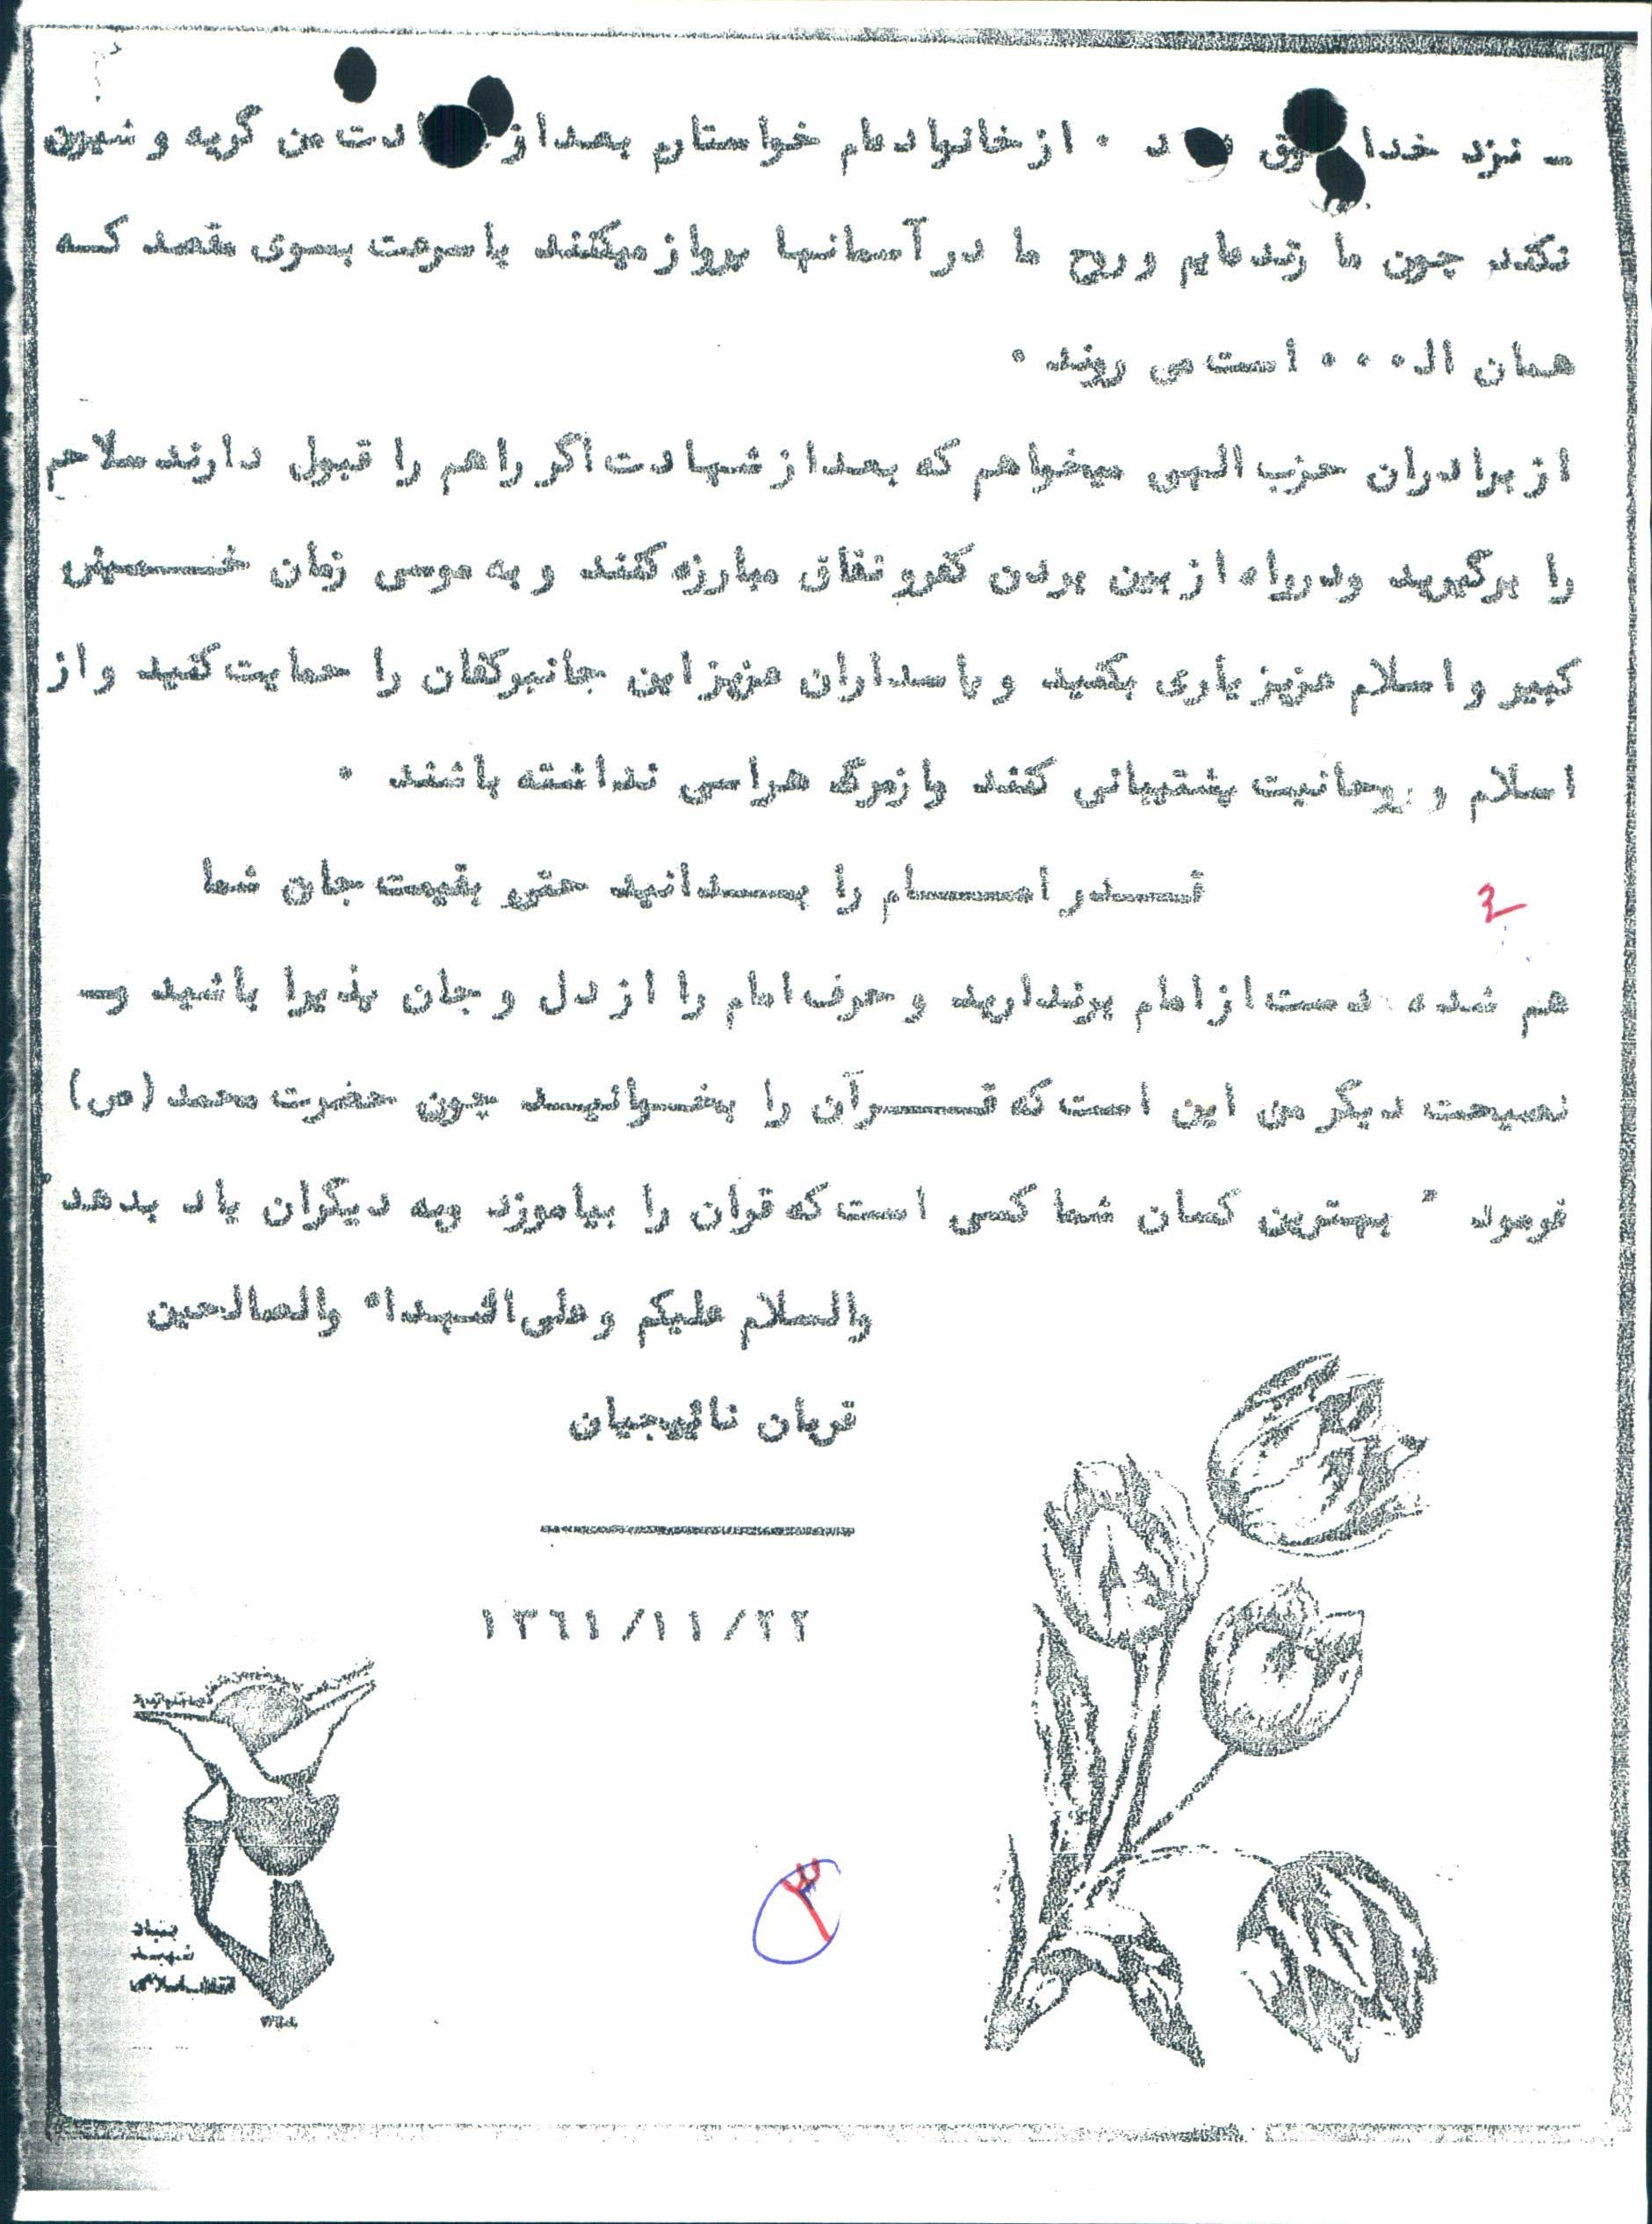 - نزد خدا د ۰ از خانواده‌ام خواستارم بعد از ادت من گریه و شیون
نکند چون ما زنده‌ایم و روح ما در آسمانها پرواز میکنند با سرعت بسوی مقصد کــه
همان الـ ۰۰۰ است می روند ۰
از برادران حزب الهی میخواهم که بعد از شهادت اگر راهم را قبول دارند سلاحم
را برگیرید و در راه از بین بردن کفر و نفاق مبارزه کنند و به موسی زمان خــمینی
کبیر و اسلام عزیز یاری بکنید و پاسداران عزیز این جانبرکفان را حمایت کنید و از
اسلام و روحانیت پشتیبانی کنند و از مرگ هراسی نداشته باشند ۰
قــدر امــام را بــدانید حتی بقیمت جان شما
هم شده دست از امام برندارید و حرف امام را از دل و جان پذیرا باشید و-
نصیحت دیگر من این است که قــرآن را بخــوانیــد چون حضرت محمد (ص)
فرمود " بهترین کسان شما کسی است که قران را بیاموزد و به دیگران یاد بدهد"
والسلام علیکم و علی الشهداء والصالحین
قربان
۱۳٦۱/۱۱/۲۲
۳
بنیاد
شهید
انقلاب اسلامی